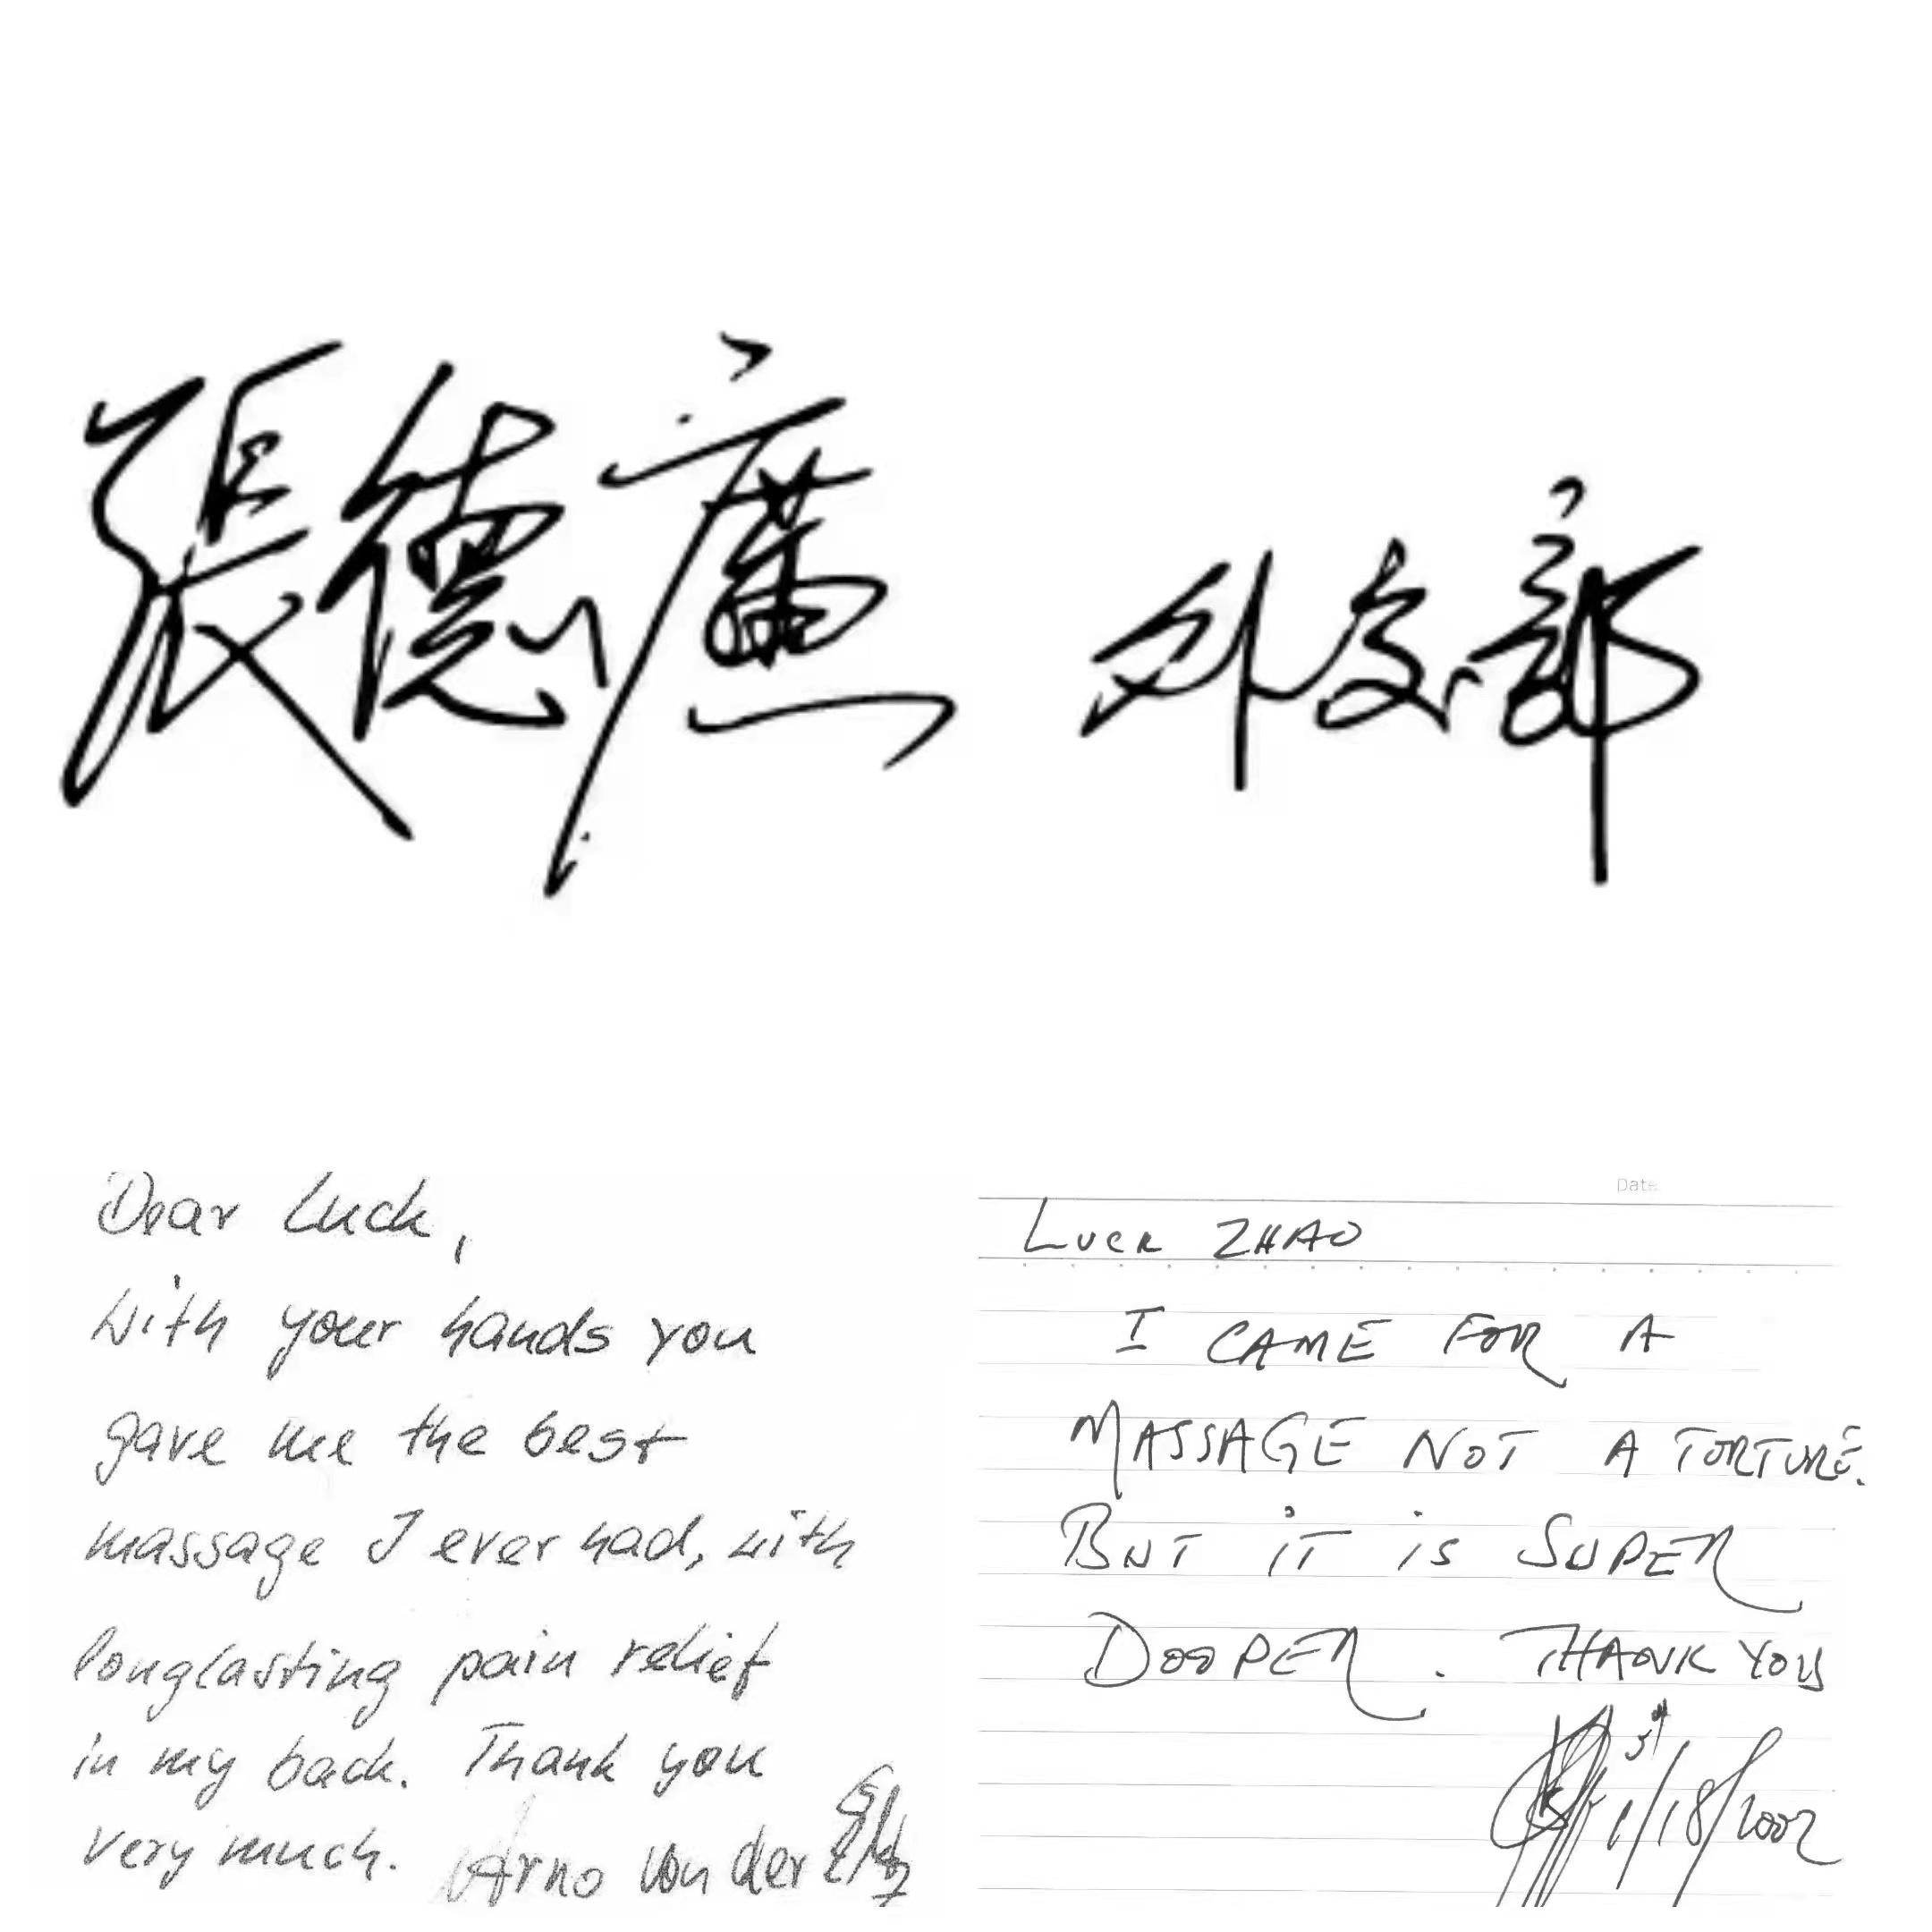 張德廣 外交部
Dear Luck,
with your hands you
gave me the best
massage I ever had, with
longlasting pain relief
in my back. Thank you
very much. Arno von der
Date
Luck ZHAO
I CAME FOR A
MASSAGE NOT A TORTURE.
BUT iT is SUPER
DOOPER. THANK YOU
1/18/2002